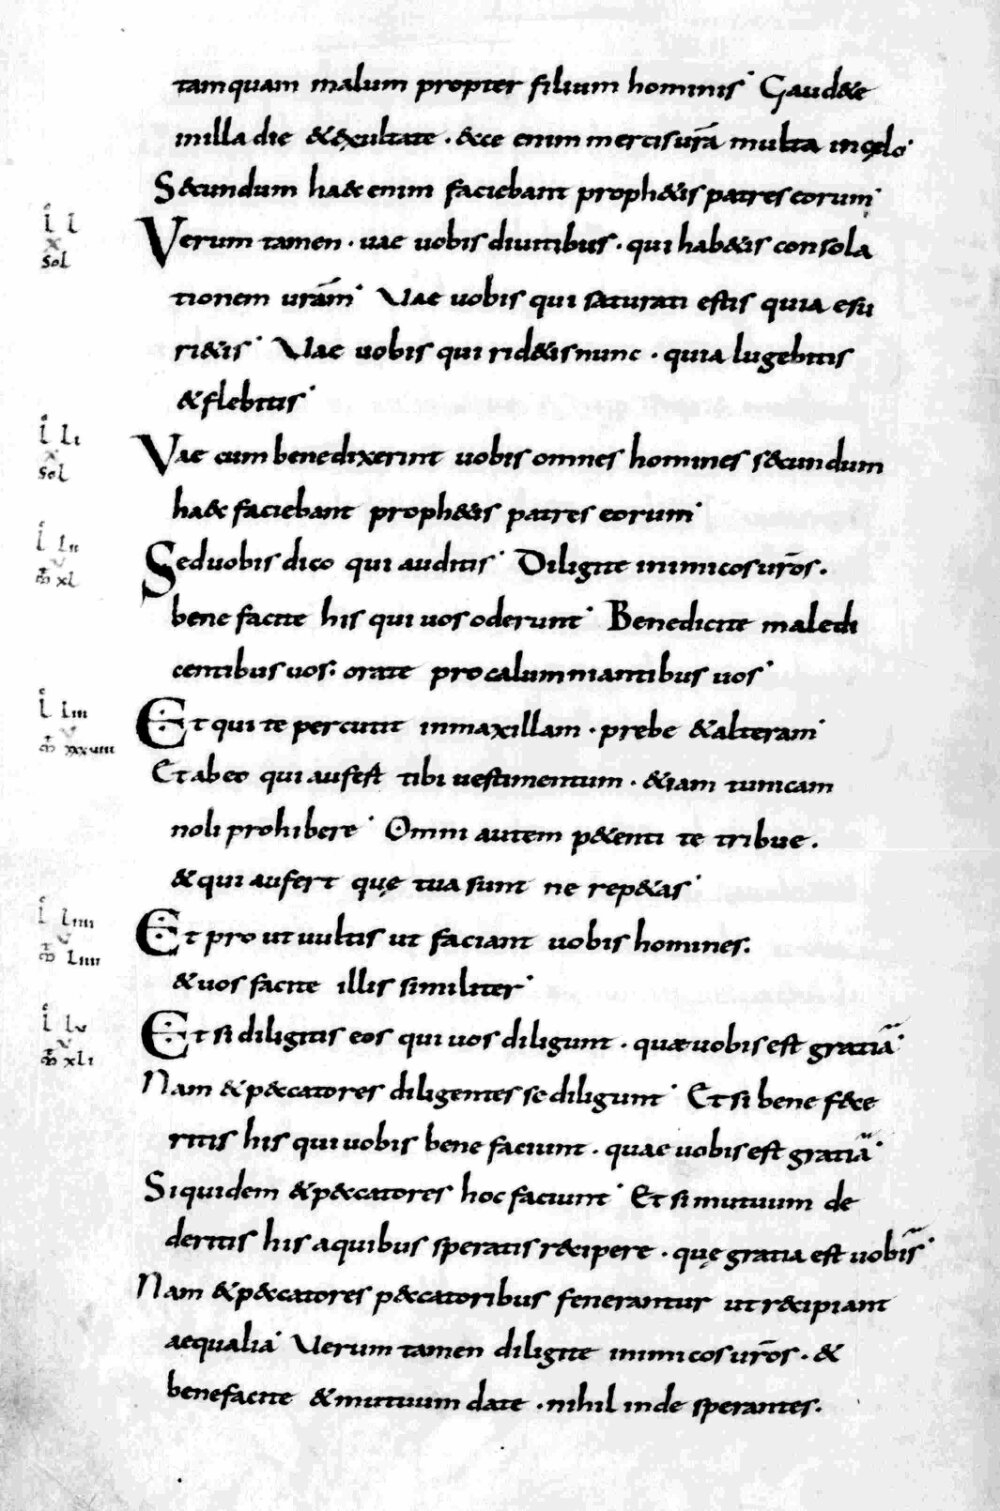 tamquam malum propter filium hominis· Gaud&e
inilla die &exultate · &ce enim mercisurā multa incęlo·
S&cundum ha&c enim faciebant proph&is patres eorum·
l l
x
sol
Verum tamen · uae uobis diuitibus · qui hab&is consola
tionem urām· Uae uobis qui saturati estis quia esu
ri&is· Uae uobis qui rid&is nunc · quia lugebitis
&flebitis·
l li
x
sol
Vae cum benedixerint uobis omnes homines s&cundum
ha&c faciebant proph&is patres eorum·
l lii
v
m̄ xl
Seduobis dico qui auditis· Diligite inimicos urōs.
bene facite his qui uos oderunt· Benedicite maledi
centibus uos: orate pro calumniantibus uos·
l liii
v
m̄ xxxuiii
Et qui te percutit inmaxillam · prebe &alteram·
Et abeo qui aufest tibi uestimentum · &iam tunicam
noli prohibere· Omni autem p&enti te tribue.
&qui aufert quę tua sunt ne rep&as·
l liiii
v
m̄ Liiii
Et pro ut uultis ut faciant uobis homines:
&uos facite illis similiter·
l lv
v
m̄ xli
Et si diligitis eos qui uos diligunt · quae uobis est gratiā·
Nam &p&catores diligentes se diligunt· Et si bene f&ce
ritis his qui uobis bene faciunt · quae uobis est gratiā·
Siquidem &p&catores hoc faciunt· Et si mutuum de
deritis his aquibus speratis r&cipere · quę gratia est uobis·
Nam &p&catores p&catoribus fenerantur ut r&cipiant
aequalia· Uerum tamen diligite inimicos urōs · &
benefacite &mutuum date · nihil inde sperantes.